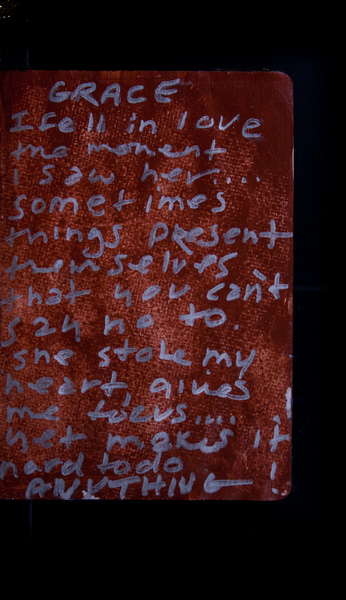 GRACE
I fell in love
the moment
i saw her...
sometimes
things present
themselves
that you can't
say no to.
she stole my
heart, gives
me focus....
yet makes it
hard to do
ANYTHING!